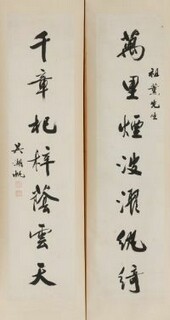 祖薰先生
萬里煙波濯紈綺
千章杞梓蔭雲天
吳湖帆